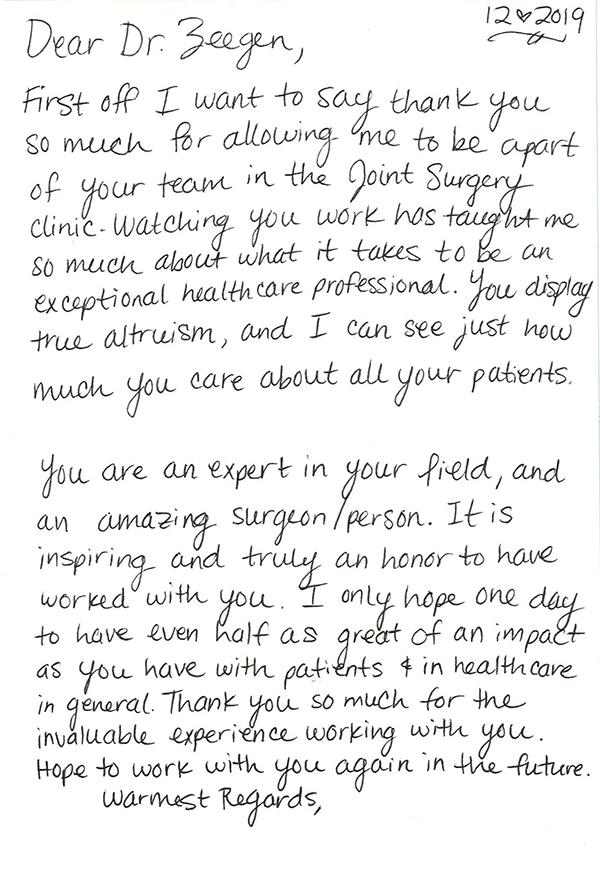 12♥2019
Dear Dr. Zeegen,
First off I want to say thank you
so much for allowing me to be apart
of your team in the Joint Surgery
clinic. Watching you work has taught me
so much about what it takes to be an
exceptional healthcare professional. You display
true altruism, and I can see just how
much you care about all your patients.
You are an expert in your field, and
an amazing surgeon/person. It is
inspiring and truly an honor to have
worked with you. I only hope one day
to have even half as great of an impact
as you have with patients & in healthcare
in general. Thank you so much for the
invaluable experience working with you.
Hope to work with you again in the future.
Warmest Regards,